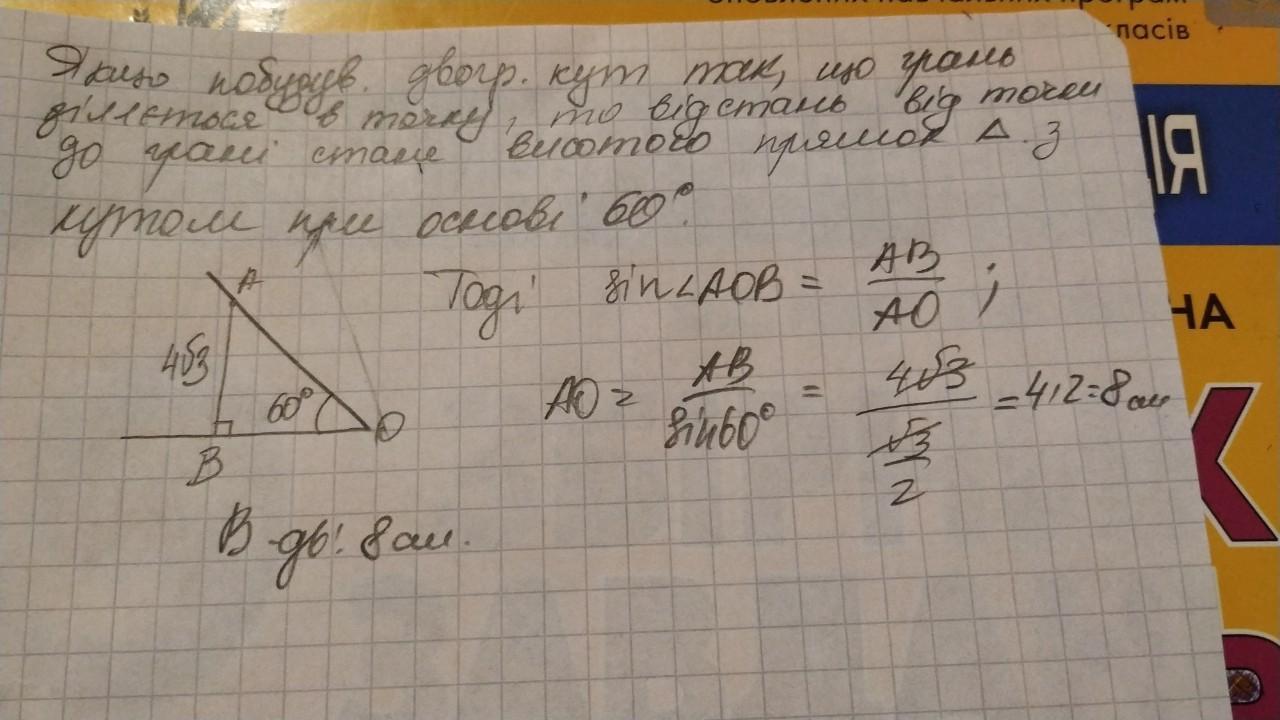 оновлених навчальних програм
класів
Якщо побудув. двогр. кут так, що грань
діляється в точку, то відстань від точки
до грані стане висотою прямок Δ. з
кутом при основі 60°.
Тоді sin∠AOB = AB/AO ;
A
4√3
60°
O
B
AO = AB/sin60° = 4√3/(√3/2) = 4·2=8 см
В-дь: 8 см.
ІЯ
НА